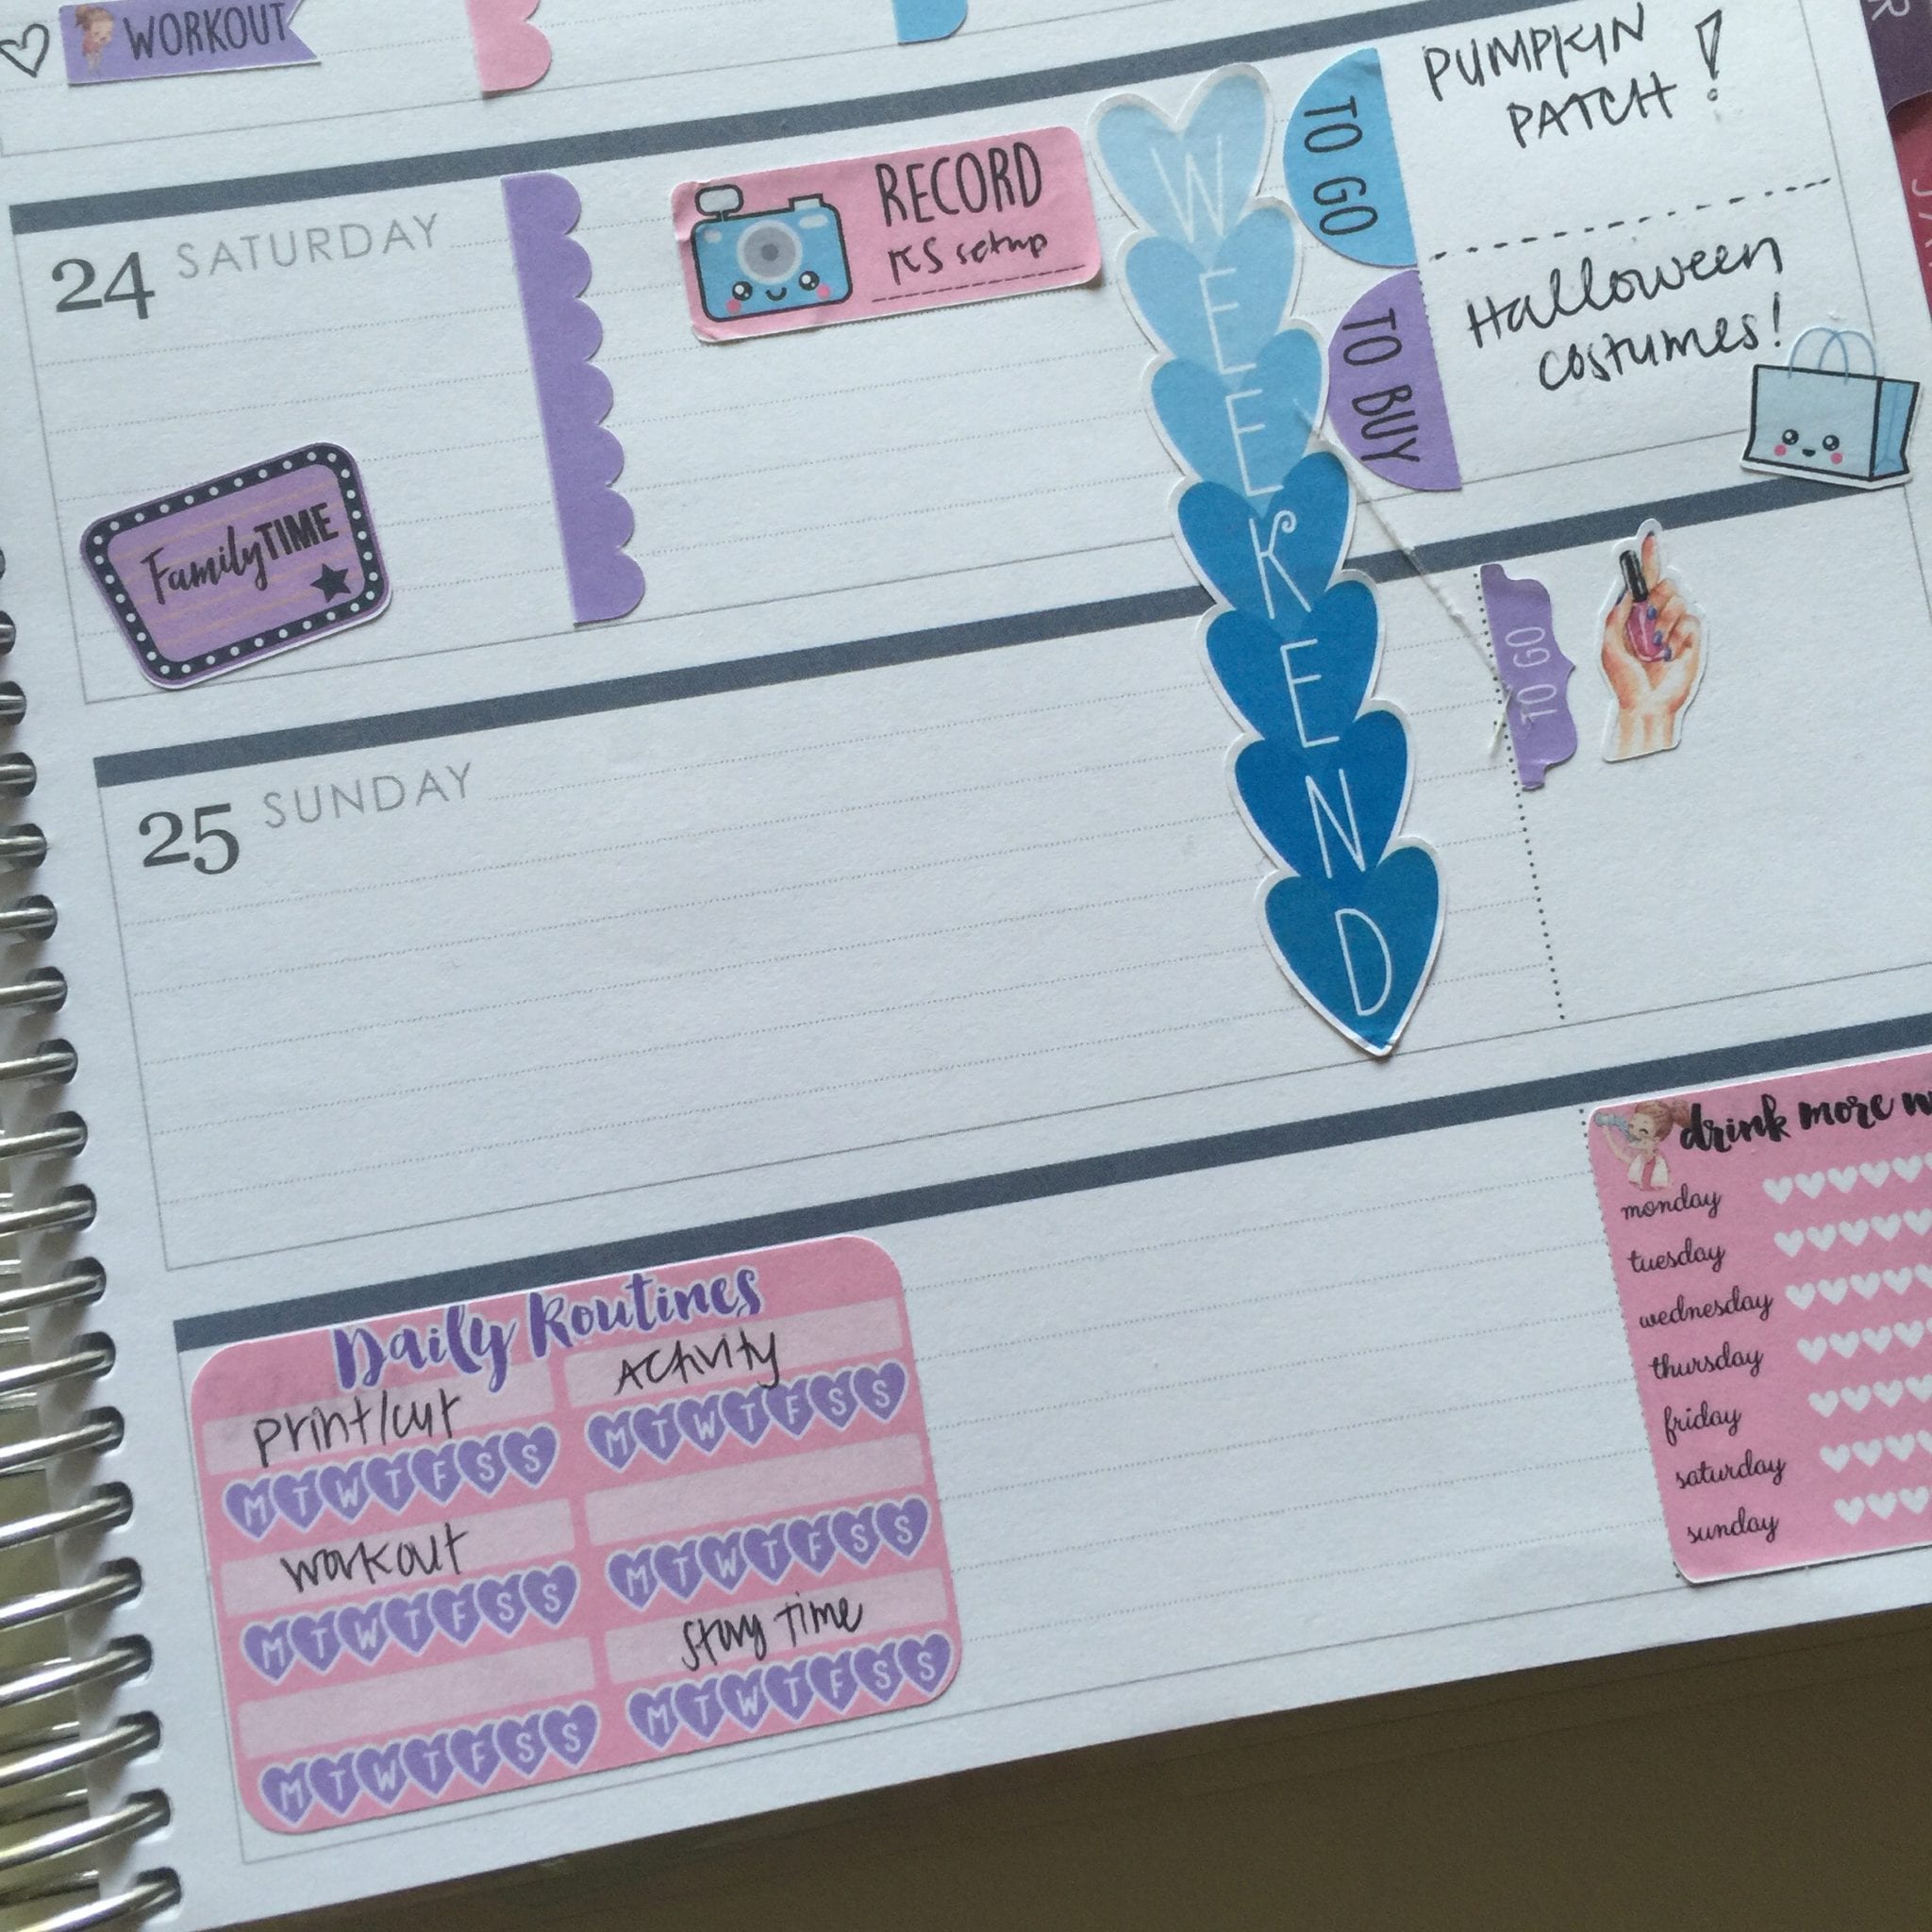 WORKOUT
24 SATURDAY
RECORD
KS setup
WEEKEND
TO GO
PUMPKIN
PATCH!
TO BUY
Halloween
costumes!
FamilyTIME
25 SUNDAY
TO GO
Daily Routines
print/cut
MTWTFSS
Activity
MTWTFSS
workout
MTWTFSS
MTWTFSS
MTWTFSS
Story Time
MTWTFSS
drink more w
monday
tuesday
wednesday
thursday
friday
saturday
sunday